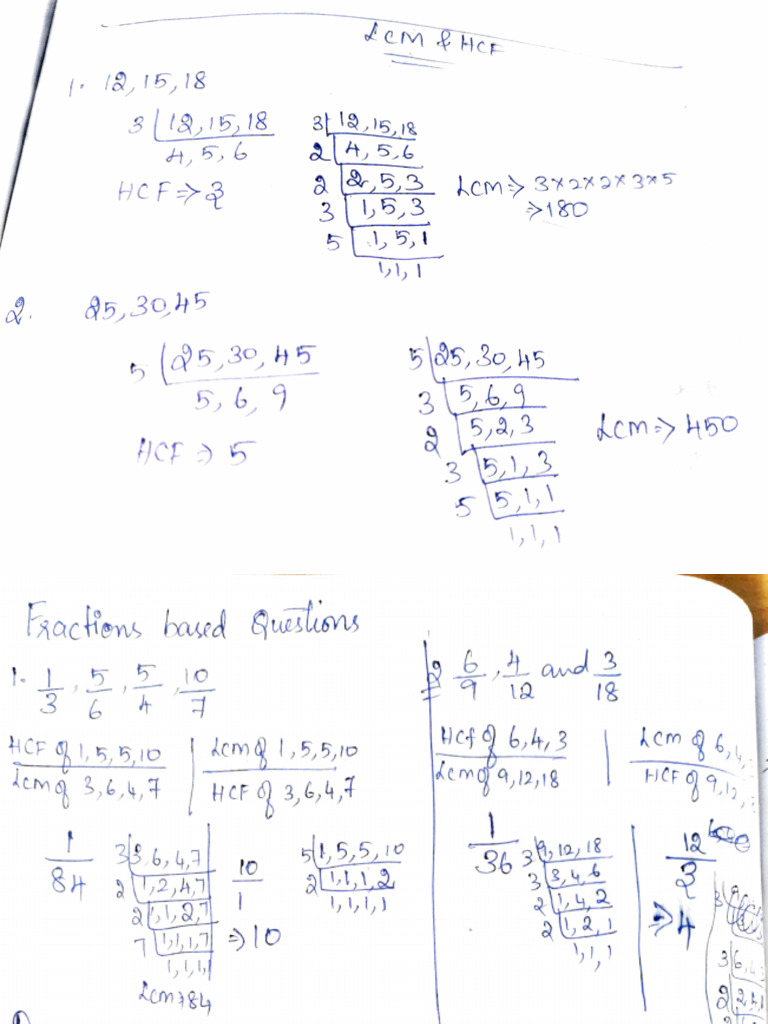 LCM & HCF
1. 12, 15, 18
3 | 12, 15, 18
4, 5, 6
HCF => 3
3 | 12, 15, 18
2 | 4, 5, 6
2 | 2, 5, 3
3 | 1, 5, 3
5 | 1, 5, 1
1, 1, 1
LCM => 3×2×2×3×5
=> 180
2. 25, 30, 45
5 | 25, 30, 45
5, 6, 9
HCF => 5
5 | 25, 30, 45
3 | 5, 6, 9
2 | 5, 2, 3
3 | 5, 1, 3
5 | 5, 1, 1
1, 1, 1
LCM => 450
Fractions based Questions
1. 1/3, 5/6, 5/4, 10/7
HCF of 1, 5, 5, 10 / LCM of 3, 6, 4, 7
LCM of 1, 5, 5, 10 / HCF of 3, 6, 4, 7
1/84
3 | 3, 6, 4, 7
2 | 1, 2, 4, 7
2 | 1, 1, 2, 7
7 | 1, 1, 1, 7
1, 1, 1
LCM => 84
10/1
=> 10
5 | 1, 5, 5, 10
2 | 1, 1, 1, 2
1, 1, 1, 1
2 6/9, 4/12 and 3/18
HCf of 6, 4, 3 / LCM of 9, 12, 18
LCM of 6, / HCF of 9, 12,
1/36
3 | 9, 12, 18
3 | 3, 4, 6
2 | 1, 4, 2
2 | 1, 2, 1
1, 1, 1
12/3
=> 4
3 | 6,